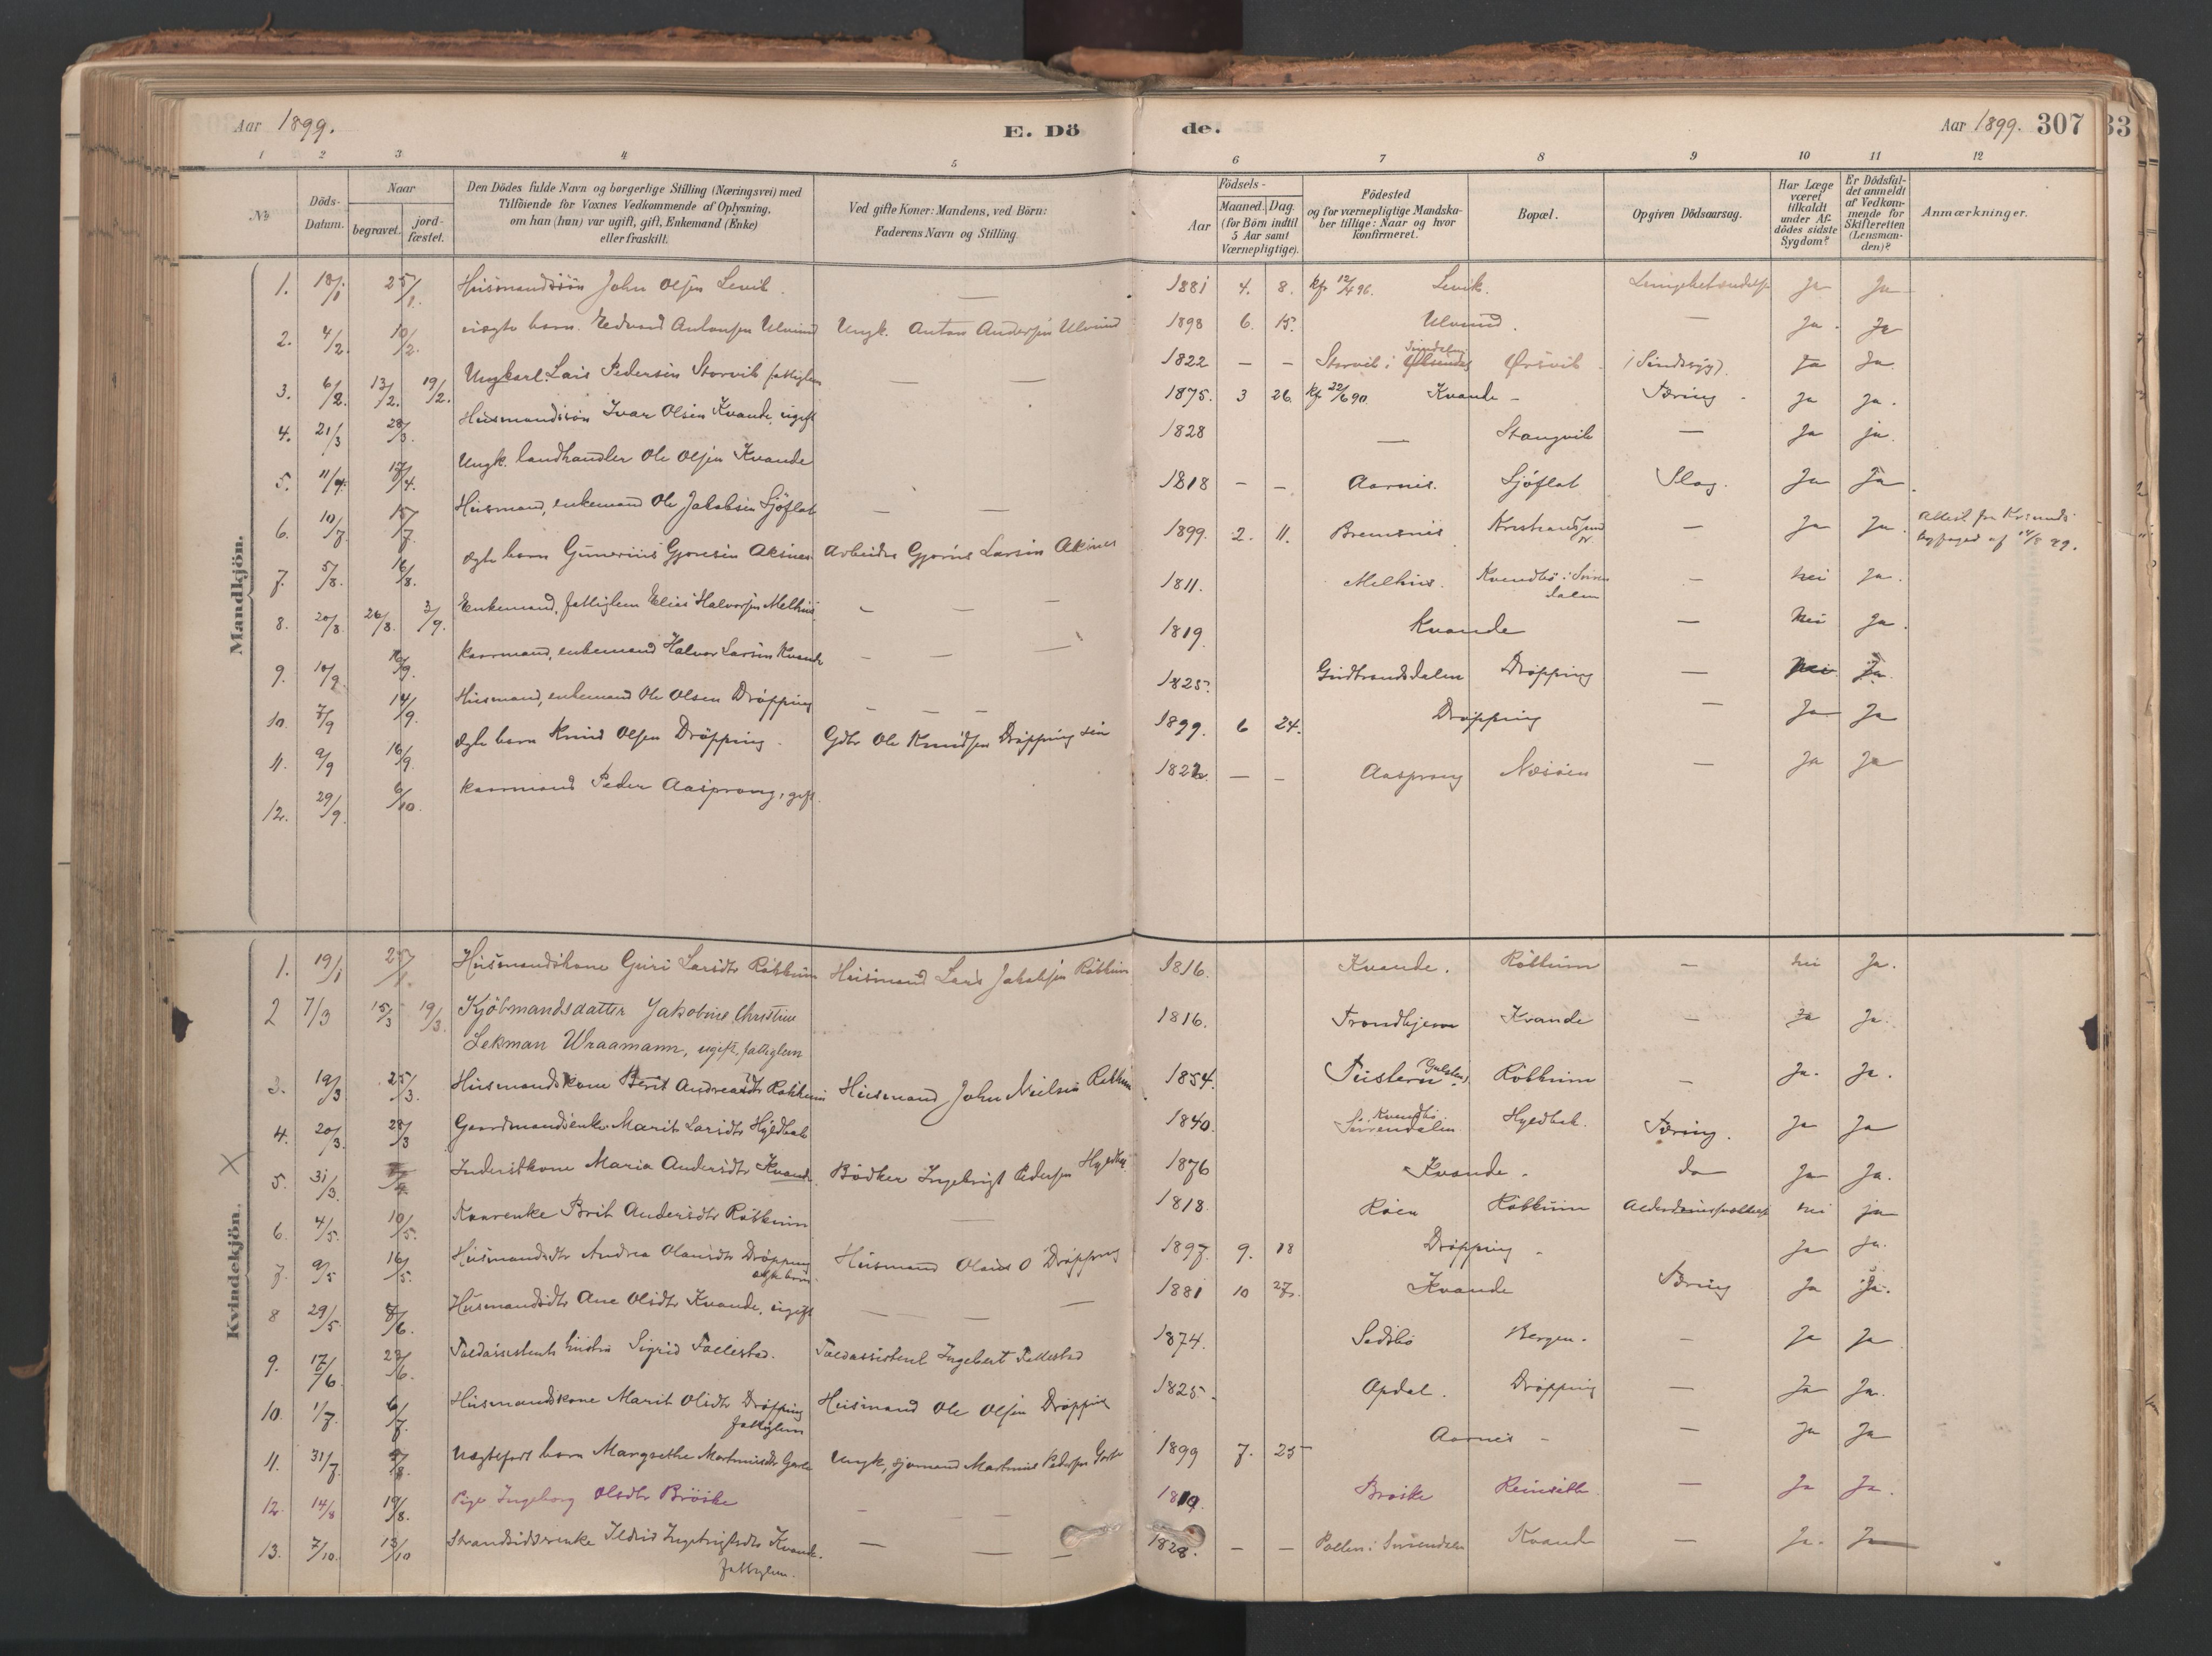 Aar 1899.
E. Döde.
Aar 1899. 307
33
1 2 3 4 5 6 7 8 9 10 11 12
№
Döds-Datum.
Naar
begravet.
jord-fæstet.
Den Dödes fulde Navn og borgerlige Stilling (Næringsvei) med
Tilföiende for Voxnes Vedkommende af Oplysning,
om han (hun) var ugift, gift, Enkemand (Enke)
eller fraskilt.
Ved gifte Koner: Mandens, ved Börn:
Faderens Navn og Stilling.
Födsels-
Aar
Maaned. Dag.
(for Börn indtil
5 Aar samt
Værnepligtige).
Födested
og for værnepligtige Mandska-
ber tillige: Naar og hvor
konfirmeret.
Bopæl.
Opgiven Dödsaarsag.
Har Læge
været
tilkaldt
under Af-
dödes sidste
Sygdom?
Er Dödsfal-
det anmeldt
af Vedkom-
mende for
Skifteretten
(Lensman-
den)?
Anmærkninger.
Mandkjön.
1. 18/1 25/1. Husmandssön John Olsen Levik. — 1881 4. 8. kf 12/4 96. Levik. Ja Ja
2. 4/2. 10/2. uægte barn. Edvard Antonsen Ulvund Ungk. Anton Andersen Ulvund 1898 6. 15. Ulvund. — Ja. Ja
3. 6/2. 13/2. 19/2. Ungkarl. Lars Pedersen Storvik fattiglem — — 1822 — — Storvik i Örsvik (Sindssyg). Ja Ja.
4. 21/3 28/3. Husmandssön Ivar Olsen Kvande, ugift 1875. 3 26. kf 22/6 90. Kvande - Tæring. Ja Ja.
5. 11/4. 17/4. Ungk. landhandler Ole Olsen Kvande 1828 — Stangvik — Ja ja.
6. 10/7. 15/7. Husmand, enkemand Ole Jakobsen Sjöflat — — 1818 - - Aarnes. Sjöflat Slag. Ja Ja
7. 5/8. 16/8. ægte barn Gunerius Gjörsen Aksnes Arbeider Gjörs Larsen Aksnes 1899. 2. 11. Bremsnes Kristiansund N. — Ja Ja. Attest fra Krsunds Byfoged af 14/8 99.
8. 20/8. 26/8. 3/9. Enkemand, fattiglem Elias Halvorsen Melhus. — — — 1811. Melhus. Kvendbö i Suren dalen — nei Ja.
9. 10/9. 16/9. Kaarmand, enkemand Halvor Larsen Kvande — — — 1819. Kvande — Nei Ja.
10. 7/9 14/9. Husmand, enkemand Ole Olsen Dröpping — — — 1825. Gudbrandsdalen Dröpping — Nei Ja.
11. 9/9 16/9. ægte barn Knud Olsen Dröpping. Gdbr Ole Knudsen Dröpping 1899. 6 24. Dröpping — Ja Ja
12. 29/9. 6/10. Kaarmand Peder Aasprong, gift. 1822. — - Aasprong — Ja Ja
Kvindekjön.
1. 19/1 25/1. Husmandskone Guri Larsdtr Röttum Husmand Lars Jakobsen Röttum 1816. Kvande. Röttum — nei Ja.
2 7/3 15/3 19/3. Kjöbmandsdatter Jakobine Christine
Lekman Wraamann, ugift, fattiglem 1816. Trondhjem Kvande — Ja Ja.
3. 19/3 25/3. Husmandskone Berit Andreasdtr Röttum Husmand John Nielsen Röttum 1854. Tustern Röttum — Ja. Ja.
4. 20/3. 28/3 Gaardmandsenke Marit Larsdtr Hjeldbak 1840. Kvendbö. Surendalen. Hjeldbak. Tæring. Ja Ja
X
5. 31/3. Inderstkone Maria Andersdtr Kvande. Bödker Ingebrigt Pedersen 1876 Kvande. do Ja Ja.
6. 4/5. 10/5. Kaarenke Brit Andersdtr Röttum — 1818. Röen Röttum nei ja
7. 9/5 16/5. Husmandsdtr Andrea Olausdtr Dröpping ægte barn. Husmand Olaus O Dröpping 1897. 9. 18 Dröpping - Ja Ja.
8 29/5. 8/6. Husmandsdtr Ane Olsdtr Kvande, ugift — — — 1881 10 27. Kvande Tæring Ja Ja.
9. 17/6. 23/6. Toldassistents hustru Sigrid Follestad. Toldassistent Ingebert Follestad 1874. Bergen. - Ja Ja
10. 1/7. 6/7. Husmandskone Marit Olsdtr Dröpping fattiglem Husmand Ole Olsen Dröpping 1825. Opdal. Dröpping — Ja Ja.
11. 31/7. Uægtefödt barn Margrethe Martinusdtr Ungk, sjömand Martinus Pedersen 1899 7. 25 Aarnes - — Ja Ja
12. 14/8 19/8. Pige Ingeborg Olsdtr Bröske — — — 1819. Bröske Reinseth — Ja Ja.
13. 7/10. 13/10 Strandsidderenke Ildrid Ingebrigtsdtr Kvande. fattiglem. — — — 1828. — — Pollen i Surendalen Kvande — Ja. Ja